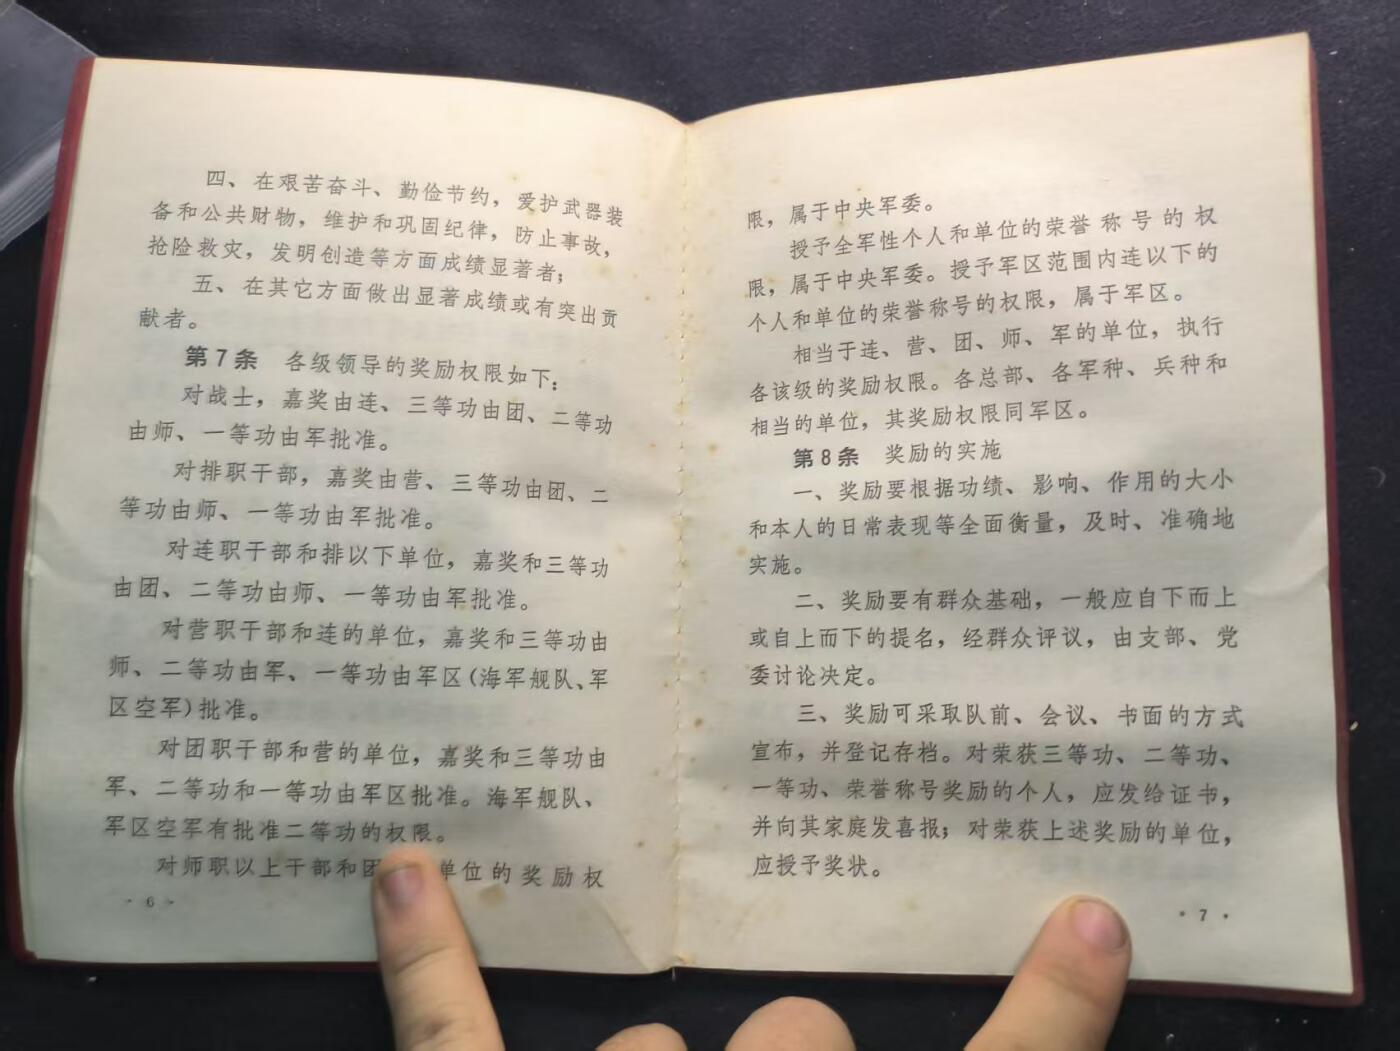 四、在艰苦奋斗、勤俭节约，爱护武器装
备和公共财物，维护和巩固纪律，防止事故，
抢险救灾，发明创造等方面成绩显著者；
五、在其它方面做出显著成绩或有突出贡
献者。
第7条 各级领导的奖励权限如下：
对战士，嘉奖由连、三等功由团、二等功
由师、一等功由军批准。
对排职干部，嘉奖由营、三等功由团、二
等功由师、一等功由军批准。
对连职干部和排以下单位，嘉奖和三等功
由团、二等功由师、一等功由军批准。
对营职干部和连的单位，嘉奖和三等功由
师、二等功由军、一等功由军区(海军舰队、军
区空军)批准。
对团职干部和营的单位，嘉奖和三等功由
军、二等功和一等功由军区批准。海军舰队、
军区空军有批准二等功的权限。
对师职以上干部和团单位的奖励权
·6·
限，属于中央军委。
授予全军性个人和单位的荣誉称号的权
限，属于中央军委。授予军区范围内连以下的
个人和单位的荣誉称号的权限，属于军区。
相当于连、营、团、师、军的单位，执行
各该级的奖励权限。各总部、各军种、兵种和
相当的单位，其奖励权限同军区。
第8条 奖励的实施
一、奖励要根据功绩、影响、作用的大小
和本人的日常表现等全面衡量，及时、准确地
实施。
二、奖励要有群众基础，一般应自下而上
或自上而下的提名，经群众评议，由支部、党
委讨论决定。
三、奖励可采取队前、会议、书面的方式
宣布，并登记存档。对荣获三等功、二等功、
一等功、荣誉称号奖励的个人，应发给证书，
并向其家庭发喜报；对荣获上述奖励的单位，
应授予奖状。
·7·